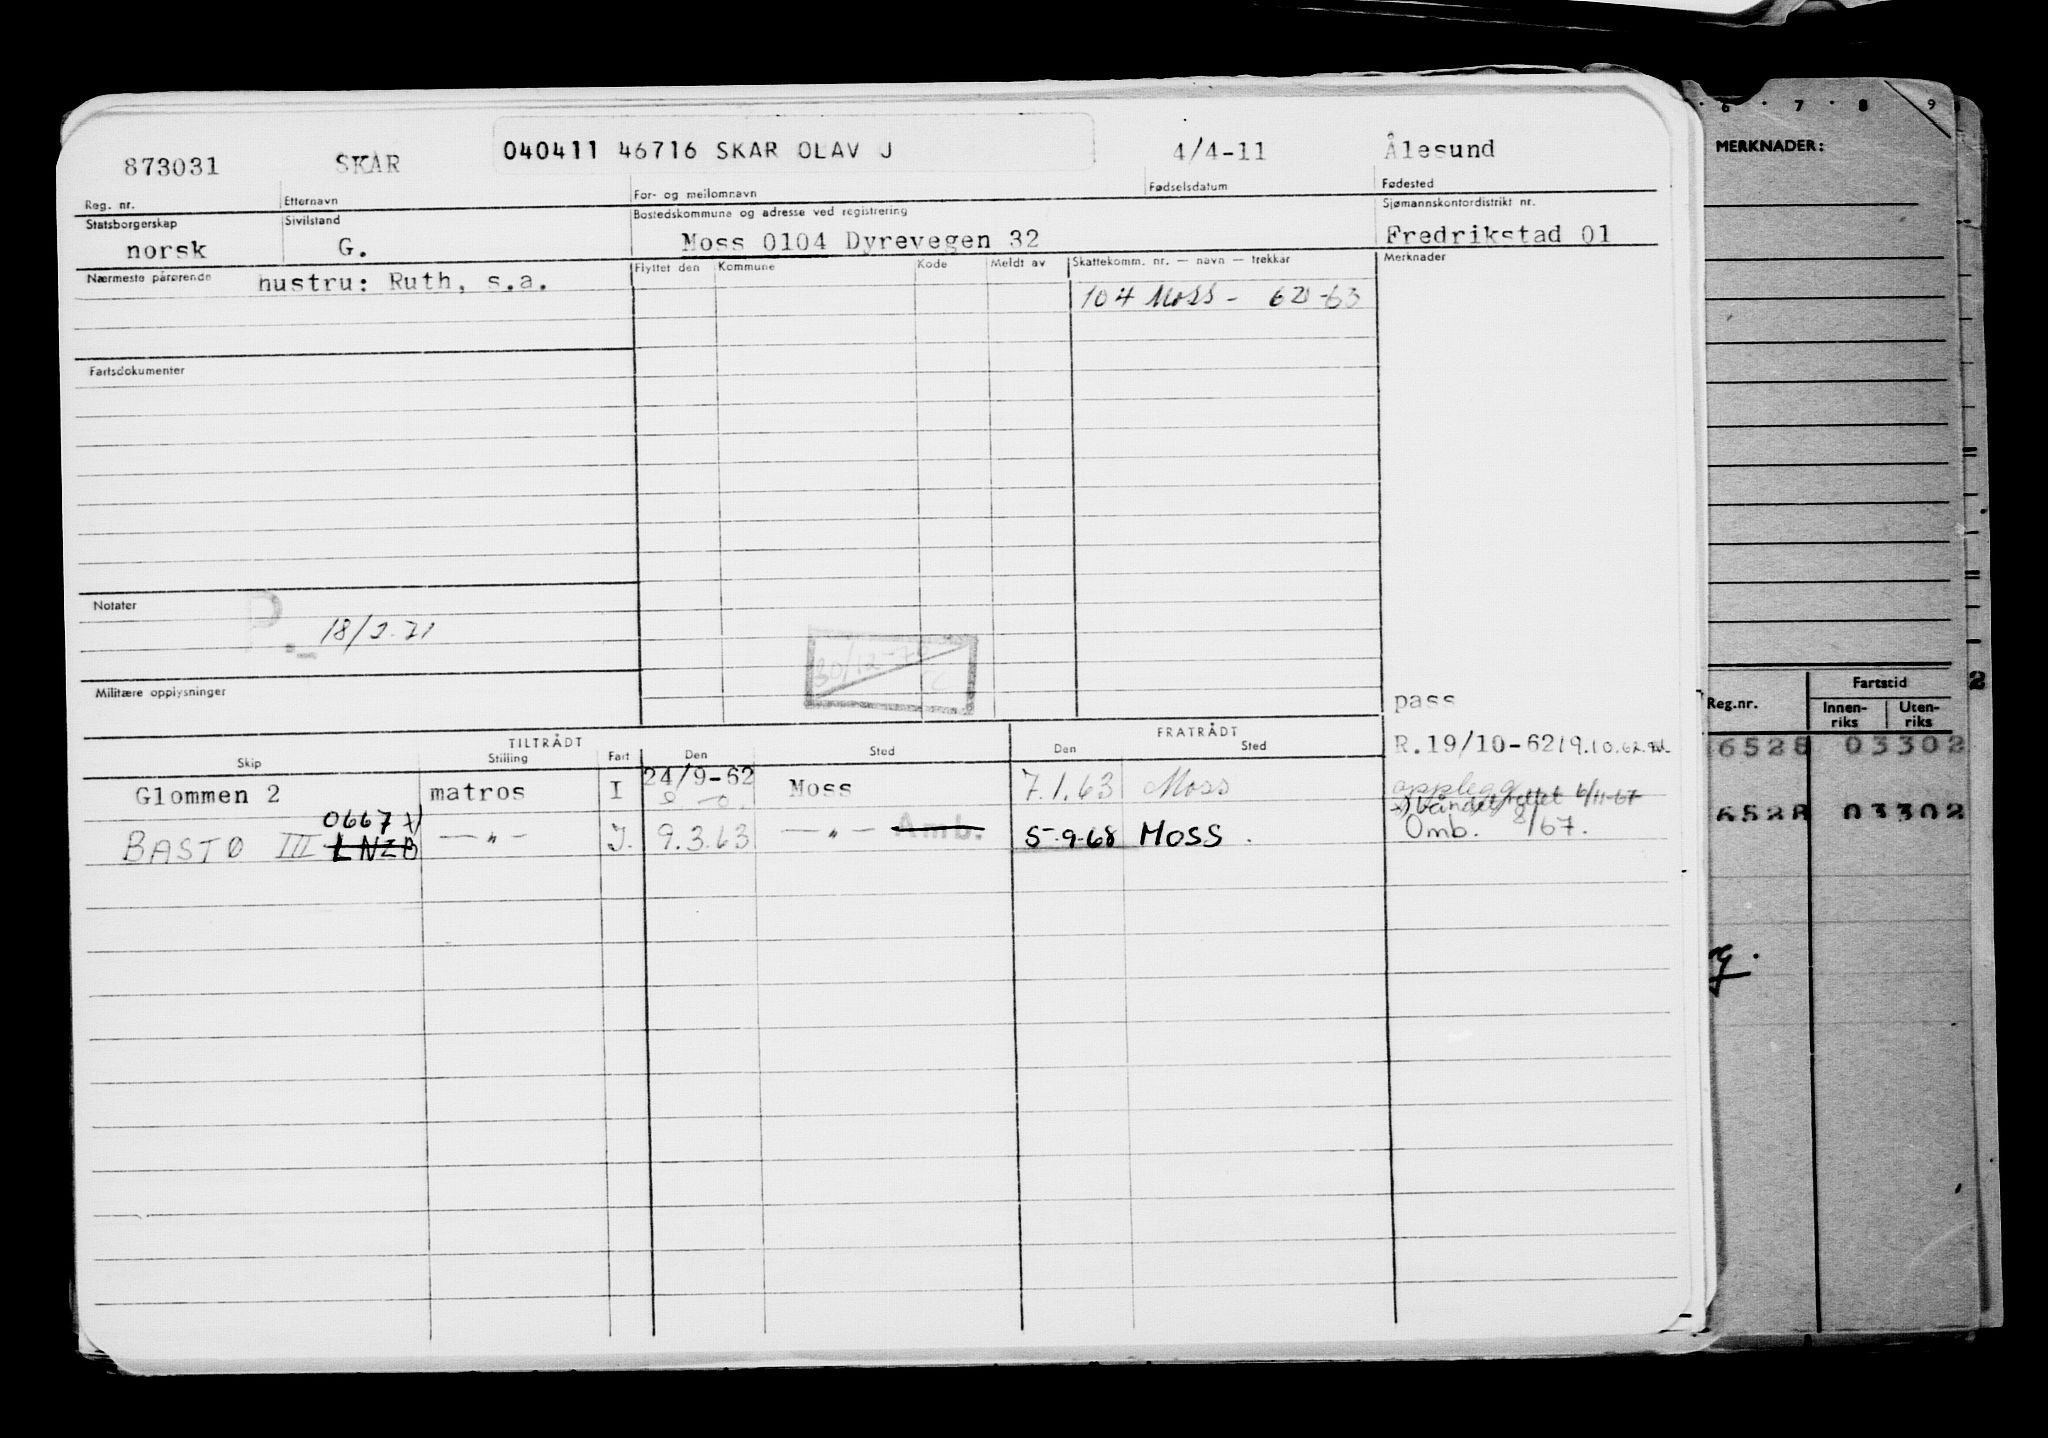 873031 SKAR 040411 46716 SKAR OLAV J 4/4-11 Ålesund
Reg. nr. Etternavn For- og mellomnavn Fødselsdatum Fødested
Statsborgerskap Sivilstand Bostedskommune og adresse ved registrering Sjømannskontordistrikt nr.
norsk G. Moss 0104 Dyrevegen 32 Fredrikstad 01
Nærmeste pårørende hustru: Ruth, s.a. Flyttet den Kommune Kode Meldt av Skattekomm. nr. — navn — trekkår Merknader
104 Moss -
Fartsdokumenter
Notater
18/2.71
Militære opplysninger
30/12-70
pass
TILTRÅDT FRATRÅDT
Skip Stilling Fart Den Sted Den Sted
R.19/10-62 19.10.62
Glommen 2 matros I 24/9-62 Moss 7.1.63 Moss opplegg
0667 x)
BASTØ III LNZB —„— I. 9.3.63 —„— Amb. 5-9-68 MOSS. Omb. 8/67.
6 7 8 9
MERKNADER:
2
Reg.nr. Fartstid
Innen-riks Uten-riks
6528 03302
6528 03302